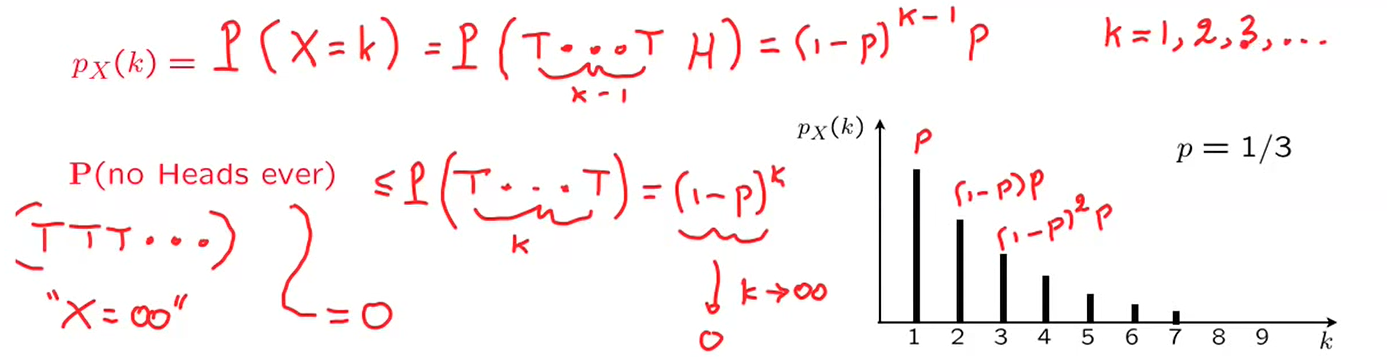 p_X(k) = P(X=k) = P(T...T H) = (1-p)^{k-1} p    k=1,2,3,...
k-1
P(no Heads ever) ≤ P(T...T) = (1-p)^k
k
(TTT...)
"X=∞" = 0
k→∞
0
p_X(k)
p = 1/3
p
(1-p)p
(1-p)^2 p
1 2 3 4 5 6 7 8 9 k